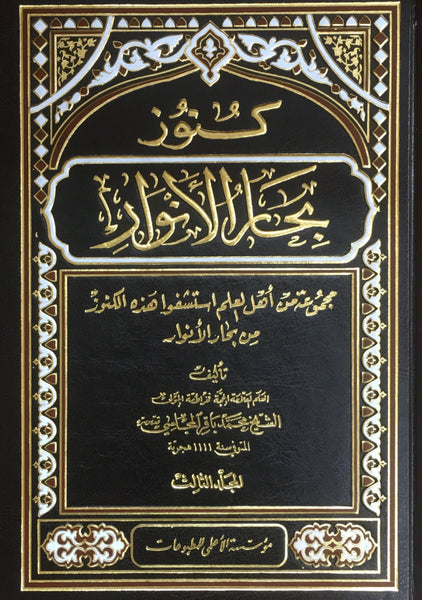 كنوز
بحار الأنوار
مجموعة من أهل العلم استشفوا هذه الكنوز
من بحار الأنوار
تأليف
العلم العلامة الحجة فخر الأمة المولى
الشيخ محمد باقر المجلسي
المتوفى سنة ١١١١ هجرية
المجلد الثالث
مؤسسة الأعلمي للمطبوعات